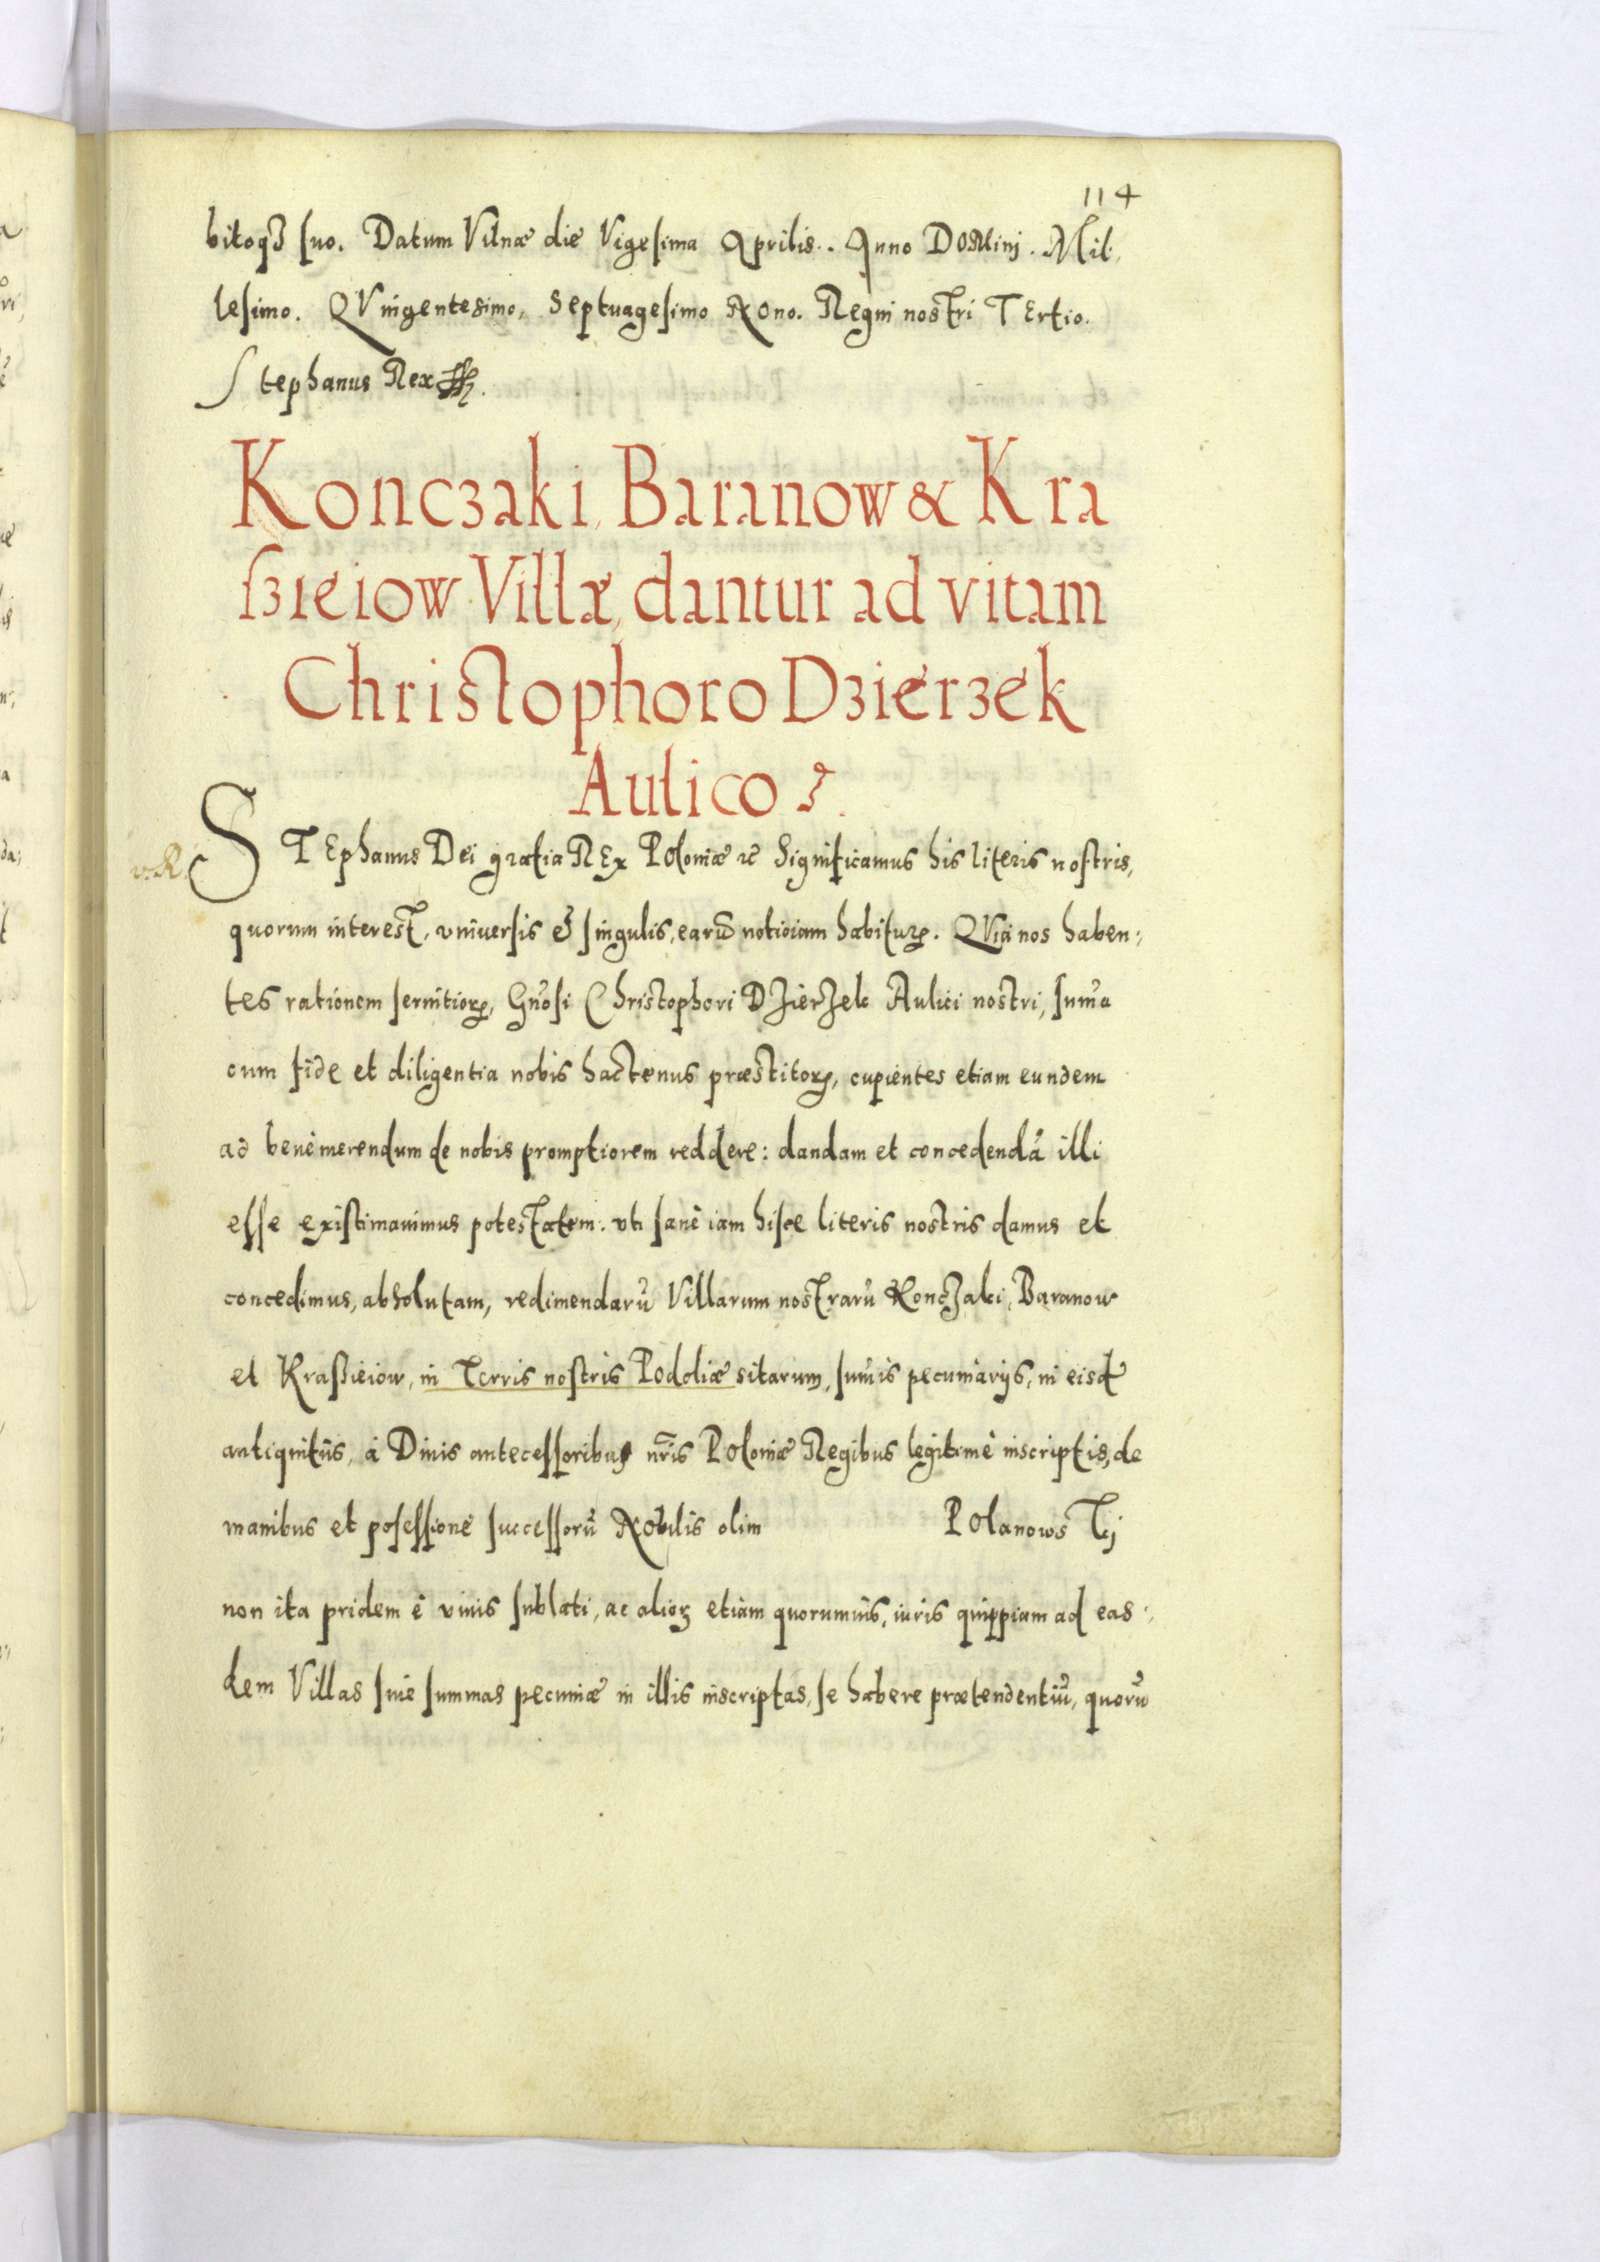 114
bitoqꝫ suo. Datum Vilnæ die Vigesima Aprilis. Anno DOMini. Mil,
lesimo. QVingentesimo, Septuagesimo Nono. Regni nostri TErtio.
Stephanus Rex
Konczaki, Baranow & Kra
ßieiow Villæ, dantur ad vitam
Christophoro Dzierżek
Aulico
v.R.
STEphanus Dei gratia REx Poloniæ ꝛc Significamus his literis nostris,
quorum interest, vniuersis et singulis, earū noticiam habituꝝ. QVia nos haben,
tes rationem seruitioꝝ, Gn̄osi Christophori DZierZek Aulici nostri, sum̄a
cum fide et diligentia nobis hactenus præstitoꝝ, cupientes etiam eundem
ad benèmerendum de nobis promptiorem reddere: dandam et concedendā illi
esse existimauimus potestatem. vti sanè iam hisce literis nostris damus et
concedimus, absolutam, redimendarū Villarum nostrarū KonczZaki, Baranow
et Kraßieiow, in Terris nostris Podoliæ sitarum, sum̄is pecuniarijs, in eisdē
antiquitùs, à Diuis antecessoribus nr̄is Poloniæ Regibus legitimè inscriptis, de
manibus et posessione successorū Nobilis olim Polanowskij
non ita pridem è viuis sublati, ac alioꝝ etiam quorumuis, iuris quippiam ad eas,
dem Villas siue summas pecuniæ in illis inscriptas, se habere prætendentiū, quorū